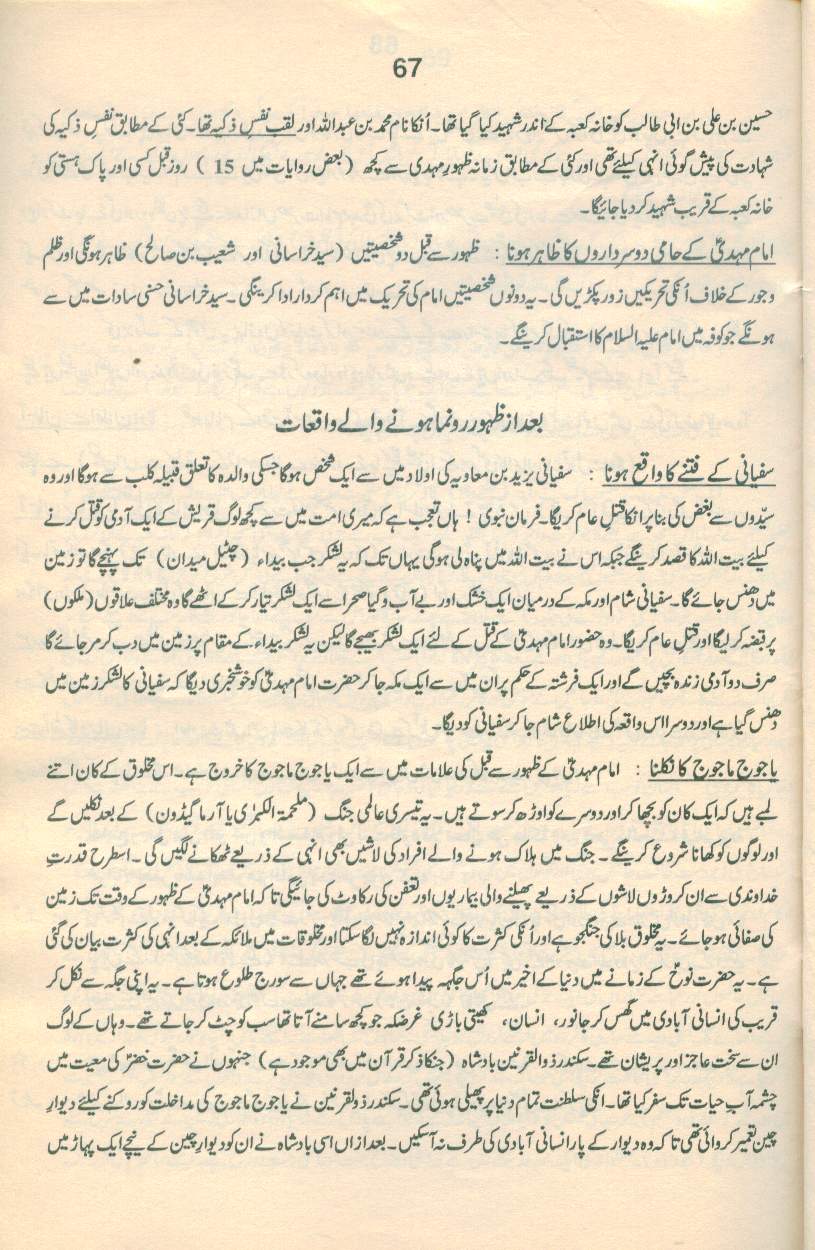 67
حسین بن علی بن ابی طالب کو خانہ کعبہ کے اندر شہید کیا گیا تھا۔ اُنکا نام محمد بن عبداللہ اور لقب نفسِ ذکیہ تھا۔ کئی کے مطابق نفسِ ذکیہ کی
شہادت کی پیش گوئی انہی کیلئے تھی اور کئی کے مطابق زمانہ ظہورِ مہدی سے کچھ (بعض روایات میں 15 ) روز قبل کسی اور پاک ہستی کو
خانہ کعبہ کے قریب شہید کر دیا جائیگا۔
امام مہدیؑ کے حامی دو سرداروں کا ظاہر ہونا : ظہور سے قبل دو شخصیتیں (سید خراسانی اور شعیب بن صالح) ظاہر ہونگی اور ظلم
و جور کے خلاف اُنکی تحریکیں زور پکڑیں گی۔ یہ دونوں شخصیتیں امام کی تحریک میں اہم کردار ادا کرینگی۔ سید خراسانی حسنی سادات میں سے
ہونگے جو کوفہ میں امام علیہ السلام کا استقبال کرینگے۔
بعد از ظہور رونما ہونے والے واقعات
سفیانی کے فتنے کا واقع ہونا : سفیانی یزید بن معاویہ کی اولاد میں سے ایک شخص ہوگا جسکی والدہ کا تعلق قبیلہ کلب سے ہوگا اور وہ
سیّدوں سے بغض کی بنا پر انکا قتلِ عام کریگا۔ فرمان نبوی ! ہاں تعجب ہے کہ میری امت میں سے کچھ لوگ قریش کے ایک آدمی کو قتل کرنے
کیلئے بیت اللہ کا قصد کرینگے جبکہ اس نے بیت اللہ میں پناہ لی ہوگی یہاں تک کہ یہ لشکر جب بیداء (چٹیل میدان) تک پہنچے گا تو زمین
میں دھنس جائے گا۔ سفیانی شام اور مکہ کے درمیان ایک خشک اور بے آب و گیا صحرا سے ایک لشکر تیار کر کے اٹھے گا وہ مختلف علاقوں (ملکوں)
پر قبضہ کر لیگا اور قتلِ عام کریگا۔ وہ حضور امام مہدیؑ کے قتل کے لئے ایک لشکر بھیجے گا لیکن یہ لشکر بیداء کے مقام پر زمین میں دب کر مر جائے گا
صرف دو آدمی زندہ بچیں گے اور ایک فرشتہ کے حکم پر ان میں سے ایک مکہ جا کر حضرت امام مہدیؑ کو خوشخبری دیگا کہ سفیانی کا لشکر زمین میں
دھنس گیا ہے اور دوسرا اس واقعہ کی اطلاع شام جا کر سفیانی کو دیگا۔
یاجوج ماجوج کا نکلنا : امام مہدیؑ کے ظہور سے قبل کی علامات میں سے ایک یاجوج ماجوج کا خروج ہے۔ اس مخلوق کے کان اتنے
لمبے ہیں کہ ایک کان کو بچھا کر اور دوسرے کو اوڑھ کر سوتے ہیں۔ یہ تیسری عالمی جنگ (ملحمۃ الکبرٰی یا آرماگیڈون) کے بعد نکلیں گے
اور لوگوں کو کھانا شروع کرینگے۔ جنگ میں ہلاک ہونے والے افراد کی لاشیں بھی انہی کے ذریعے ٹھکانے لگیں گی۔ اسطرح قدرتِ
خداوندی سے ان کروڑوں لاشوں کے ذریعے پھیلنے والی بیماریوں اور تعفن کی رکاوٹ کی جائیگی تاکہ امام مہدیؑ کے ظہور کے وقت تک زمین
کی صفائی ہو جائے۔ یہ مخلوق بلا کی جنگجو ہے اور اُنکی کثرت کا کوئی اندازہ نہیں لگا سکتا اور مخلوقات میں ملائکہ کے بعد انہی کی کثرت بیان کی گئی
ہے۔ یہ حضرت نوحؑ کے زمانے میں دنیا کے اخیر میں اُس جگہہ پیدا ہوئے تھے جہاں سے سورج طلوع ہوتا ہے۔ یہ اپنی جگہ سے نکل کر
قریب کی انسانی آبادی میں گھس کر جانور، انسان، کھیتی باڑی غرضکہ جو کچھ سامنے آتا تھا سب کو چٹ کر جاتے تھے۔ وہاں کے لوگ
ان سے سخت عاجز اور پریشان تھے۔ سکندر ذوالقرنین بادشاہ (جنکا ذکر قرآن میں بھی موجود ہے) جنہوں نے حضرت خضرؑ کی معیت میں
چشمہ آبِ حیات تک سفر کیا تھا۔ انکی سلطنت تمام دنیا پر پھیلی ہوئی تھی۔ سکندر ذوالقرنین نے یاجوج ماجوج کی مداخلت کو روکنے کیلئے دیوارِ
چین تعمیر کروائی تھی تاکہ وہ دیوار کے پار انسانی آبادی کی طرف نہ آسکیں۔ بعد ازاں اسی بادشاہ نے ان کو دیوارِ چین کے نیچے ایک پہاڑ میں